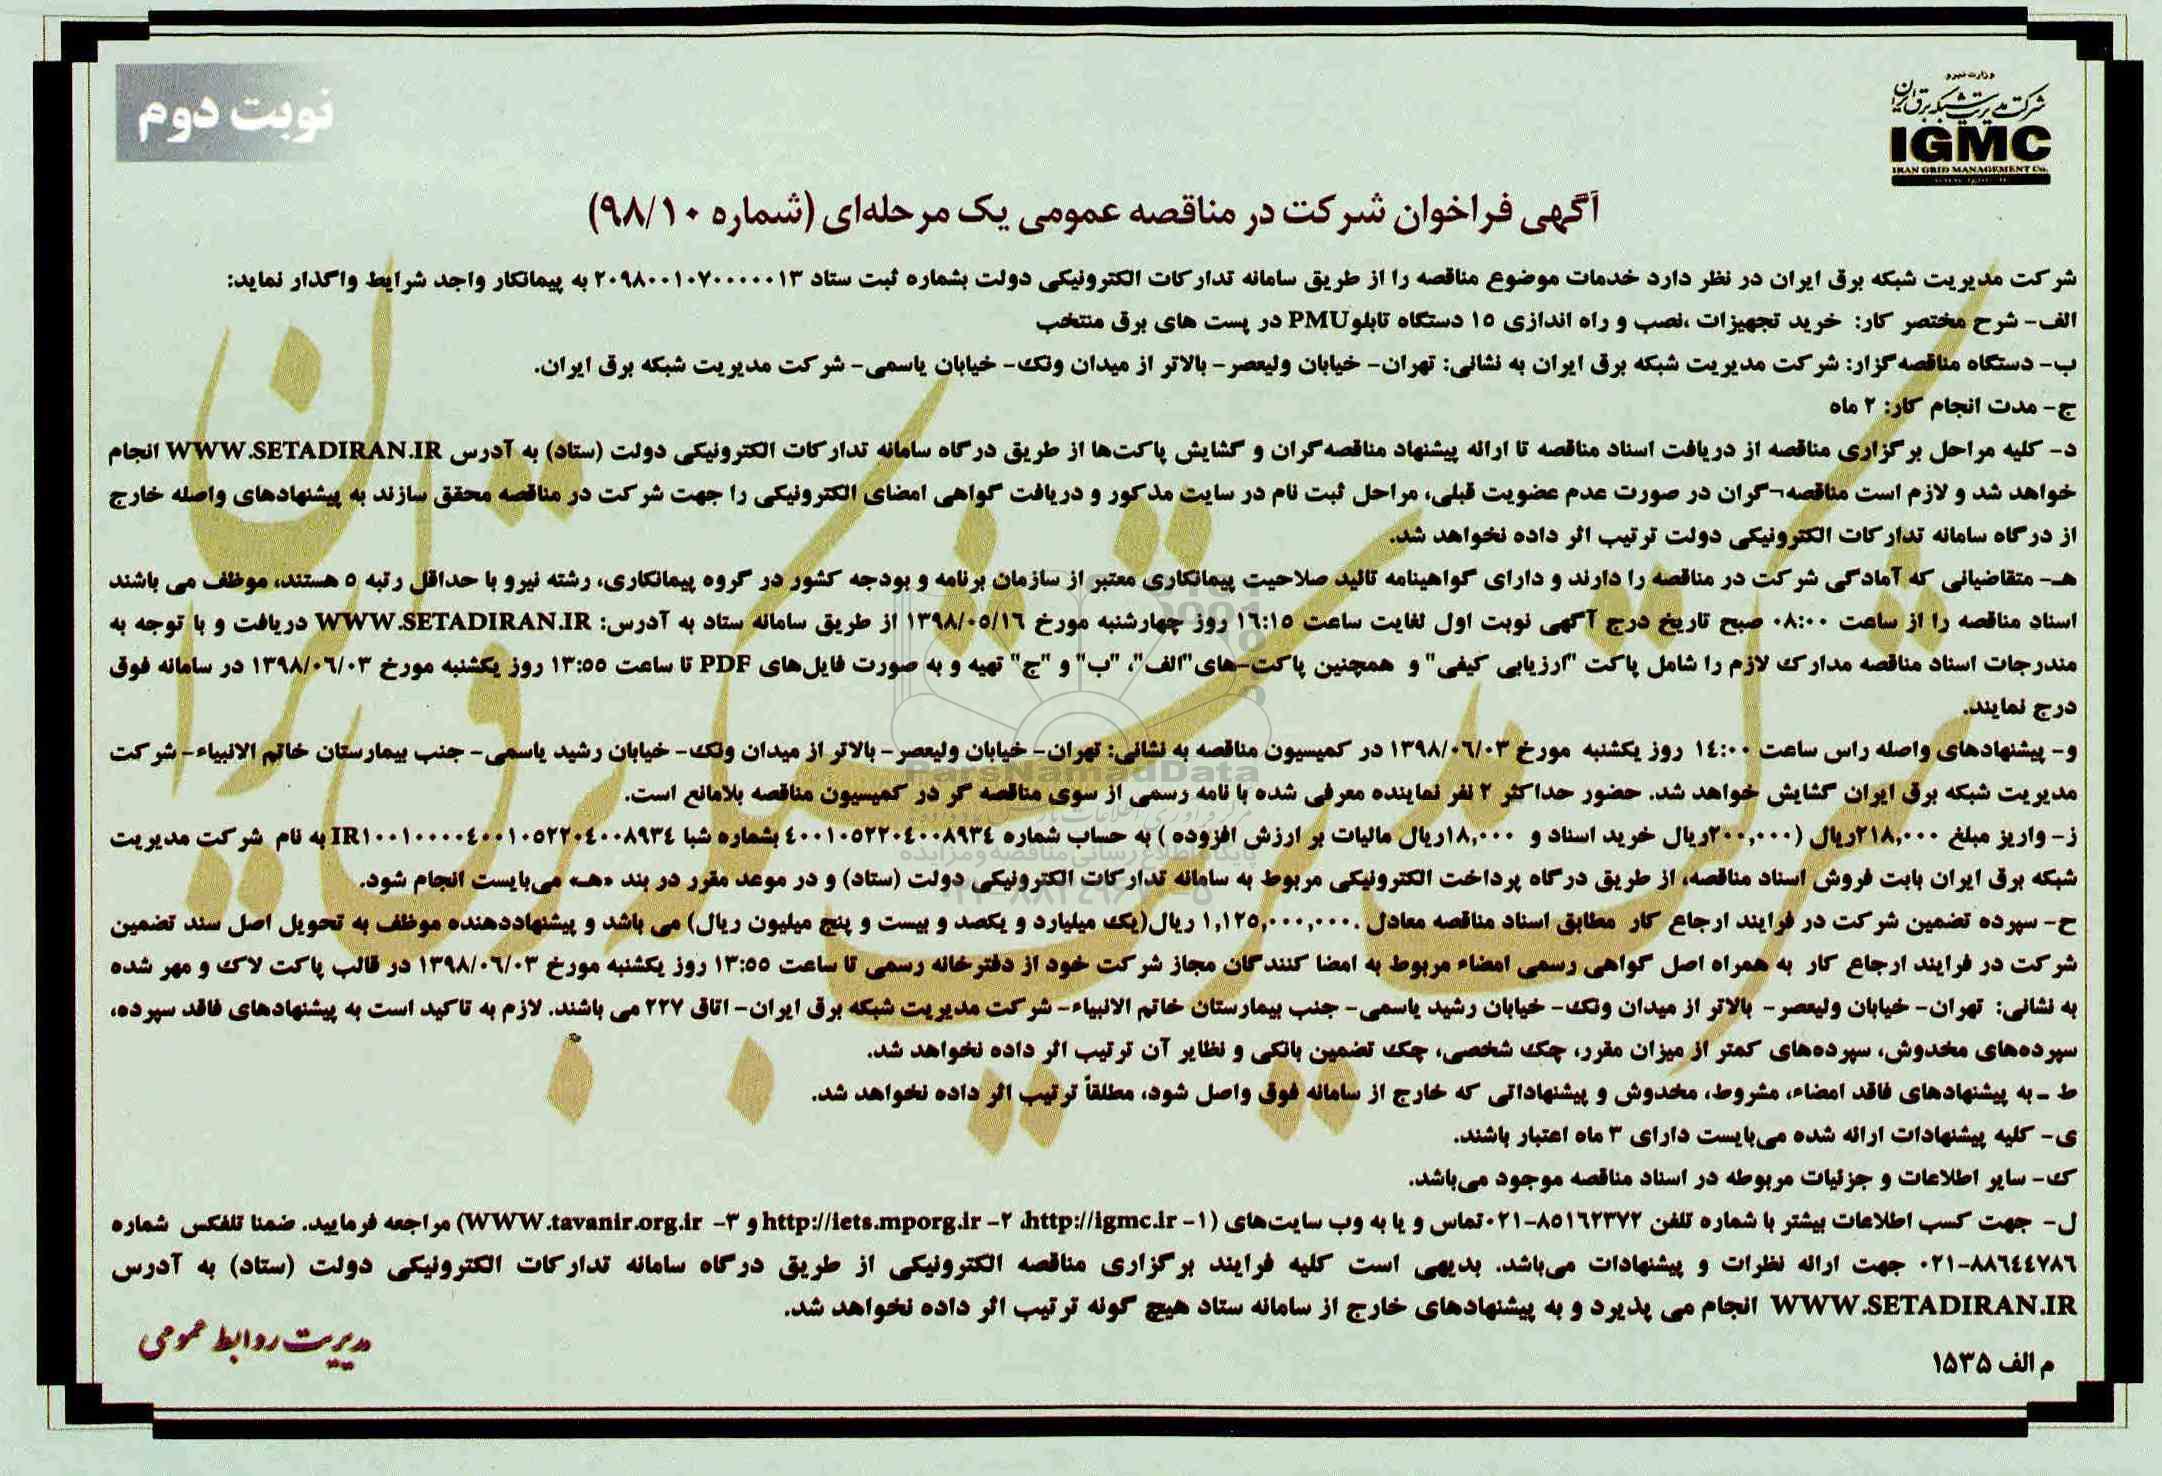 نوبت دوم
وزارت نیرو
شرکت مدیریت شبکه برق ایران
IGMC
IRAN GRID MANAGEMENT Co.
آگهی فراخوان شرکت در مناقصه عمومی یک مرحله‌ای (شماره ۹۸/۱۰)
شرکت مدیریت شبکه برق ایران در نظر دارد خدمات موضوع مناقصه را از طریق سامانه تدارکات الکترونیکی دولت بشماره ثبت ستاد ۲۰۹۸۰۰۱۰۷۰۰۰۰۰۱۳ به پیمانکار واجد شرایط واگذار نماید:
الف- شرح مختصر کار: خرید تجهیزات ،نصب و راه اندازی ۱۵ دستگاه تابلوPMU در پست های برق منتخب
ب- دستگاه مناقصه‌گزار: شرکت مدیریت شبکه برق ایران به نشانی: تهران- خیابان ولیعصر- بالاتر از میدان ونک- خیابان یاسمی- شرکت مدیریت شبکه برق ایران.
ج- مدت انجام کار: ۲ ماه
د- کلیه مراحل برگزاری مناقصه از دریافت اسناد مناقصه تا ارائه پیشنهاد مناقصه‌گران و گشایش پاکت‌ها از طریق درگاه سامانه تدارکات الکترونیکی دولت (ستاد) به آدرس WWW.SETADIRAN.IR انجام
خواهد شد و لازم است مناقصه¬گران در صورت عدم عضویت قبلی، مراحل ثبت نام در سایت مذکور و دریافت گواهی امضای الکترونیکی را جهت شرکت در مناقصه محقق سازند به پیشنهادهای واصله خارج
از درگاه سامانه تدارکات الکترونیکی دولت ترتیب اثر داده نخواهد شد.
هـ- متقاضیانی که آمادگی شرکت در مناقصه را دارند و دارای گواهینامه تائید صلاحیت پیمانکاری معتبر از سازمان برنامه و بودجه کشور در گروه پیمانکاری، رشته نیرو با حداقل رتبه ۵ هستند، موظف می باشند
اسناد مناقصه را از ساعت ۰۸:۰۰ صبح تاریخ درج آگهی نوبت اول لغایت ساعت ۱۶:۱۵ روز چهارشنبه مورخ ۱۳۹۸/۰۵/۱۶ از طریق سامانه ستاد به آدرس: WWW.SETADIRAN.IR دریافت و با توجه به
مندرجات اسناد مناقصه مدارک لازم را شامل پاکت "ارزیابی کیفی" و همچنین پاکت-های"الف"، "ب" و "ج" تهیه و به صورت فایل‌های PDF تا ساعت ۱۳:۵۵ روز یکشنبه مورخ ۱۳۹۸/۰۶/۰۳ در سامانه فوق
درج نمایند.
و- پیشنهادهای واصله راس ساعت ۱۴:۰۰ روز یکشنبه مورخ ۱۳۹۸/۰۶/۰۳ در کمیسیون مناقصه به نشانی: تهران- خیابان ولیعصر- بالاتر از میدان ونک- خیابان رشید یاسمی- جنب بیمارستان خاتم الانبیاء- شرکت
ParsNamadData
مدیریت شبکه برق ایران گشایش خواهد شد. حضور حداکثر ۲ نفر نماینده معرفی شده با نامه رسمی از سوی مناقصه گر در کمیسیون مناقصه بلامانع است.
ز- واریز مبلغ ۲۱۸,۰۰۰ریال (۲۰۰,۰۰۰ریال خرید اسناد و ۱۸,۰۰۰ریال مالیات بر ارزش افزوده ) به حساب شماره ۴۰۰۱۰۵۲۲۰۴۰۰۸۹۳۴ بشماره شبا IR۱۰۰۱۰۰۰۰۴۰۰۱۰۵۲۲۰۴۰۰۸۹۳۴ به نام شرکت مدیریت
پایگاه اطلاع رسانی مناقصه و مزایده
شبکه برق ایران بابت فروش اسناد مناقصه، از طریق درگاه پرداخت الکترونیکی مربوط به سامانه تدارکات الکترونیکی دولت (ستاد) و در موعد مقرر در بند «هـ» می‌بایست انجام شود.
ح- سپرده تضمین شرکت در فرایند ارجاع کار مطابق اسناد مناقصه معادل .۱,۱۲۵,۰۰۰,۰۰۰ ریال(یک میلیارد و یکصد و بیست و پنج میلیون ریال) می باشد و پیشنهاددهنده موظف به تحویل اصل سند تضمین
شرکت در فرایند ارجاع کار به همراه اصل گواهی رسمی امضاء مربوط به امضا کنندگان مجاز شرکت خود از دفترخانه رسمی تا ساعت ۱۳:۵۵ روز یکشنبه مورخ ۱۳۹۸/۰۶/۰۳ در قالب پاکت لاک و مهر شده
به نشانی: تهران- خیابان ولیعصر- بالاتر از میدان ونک- خیابان رشید یاسمی- جنب بیمارستان خاتم الانبیاء- شرکت مدیریت شبکه برق ایران- اتاق ۲۲۷ می باشند. لازم به تاکید است به پیشنهادهای فاقد سپرده،
سپرده‌های مخدوش، سپرده‌های کمتر از میزان مقرر، چک شخصی، چک تضمین بانکی و نظایر آن ترتیب اثر داده نخواهد شد.
ط ـ به پیشنهادهای فاقد امضاء، مشروط، مخدوش و پیشنهاداتی که خارج از سامانه فوق واصل شود، مطلقاً ترتیب اثر داده نخواهد شد.
ی- کلیه پیشنهادات ارائه شده می‌بایست دارای ۳ ماه اعتبار باشند.
ک- سایر اطلاعات و جزئیات مربوطه در اسناد مناقصه موجود می‌باشد.
ل- جهت کسب اطلاعات بیشتر با شماره تلفن ۸۵۱۶۲۳۷۲-۰۲۱تماس و یا به وب سایت‌های (۱- http://igmc.ir، ۲- http://iets.mporg.ir و ۳- WWW.tavanir.org.ir) مراجعه فرمایید. ضمنا تلفکس شماره
۸۸۶۴۴۷۸۶-۰۲۱ جهت ارائه نظرات و پیشنهادات می‌باشد. بدیهی است کلیه فرایند برگزاری مناقصه الکترونیکی از طریق درگاه سامانه تدارکات الکترونیکی دولت (ستاد) به آدرس
WWW.SETADIRAN.IR انجام می پذیرد و به پیشنهادهای خارج از سامانه ستاد هیچ گونه ترتیب اثر داده نخواهد شد.
مدیریت روابط عمومی
م الف ۱۵۳۵